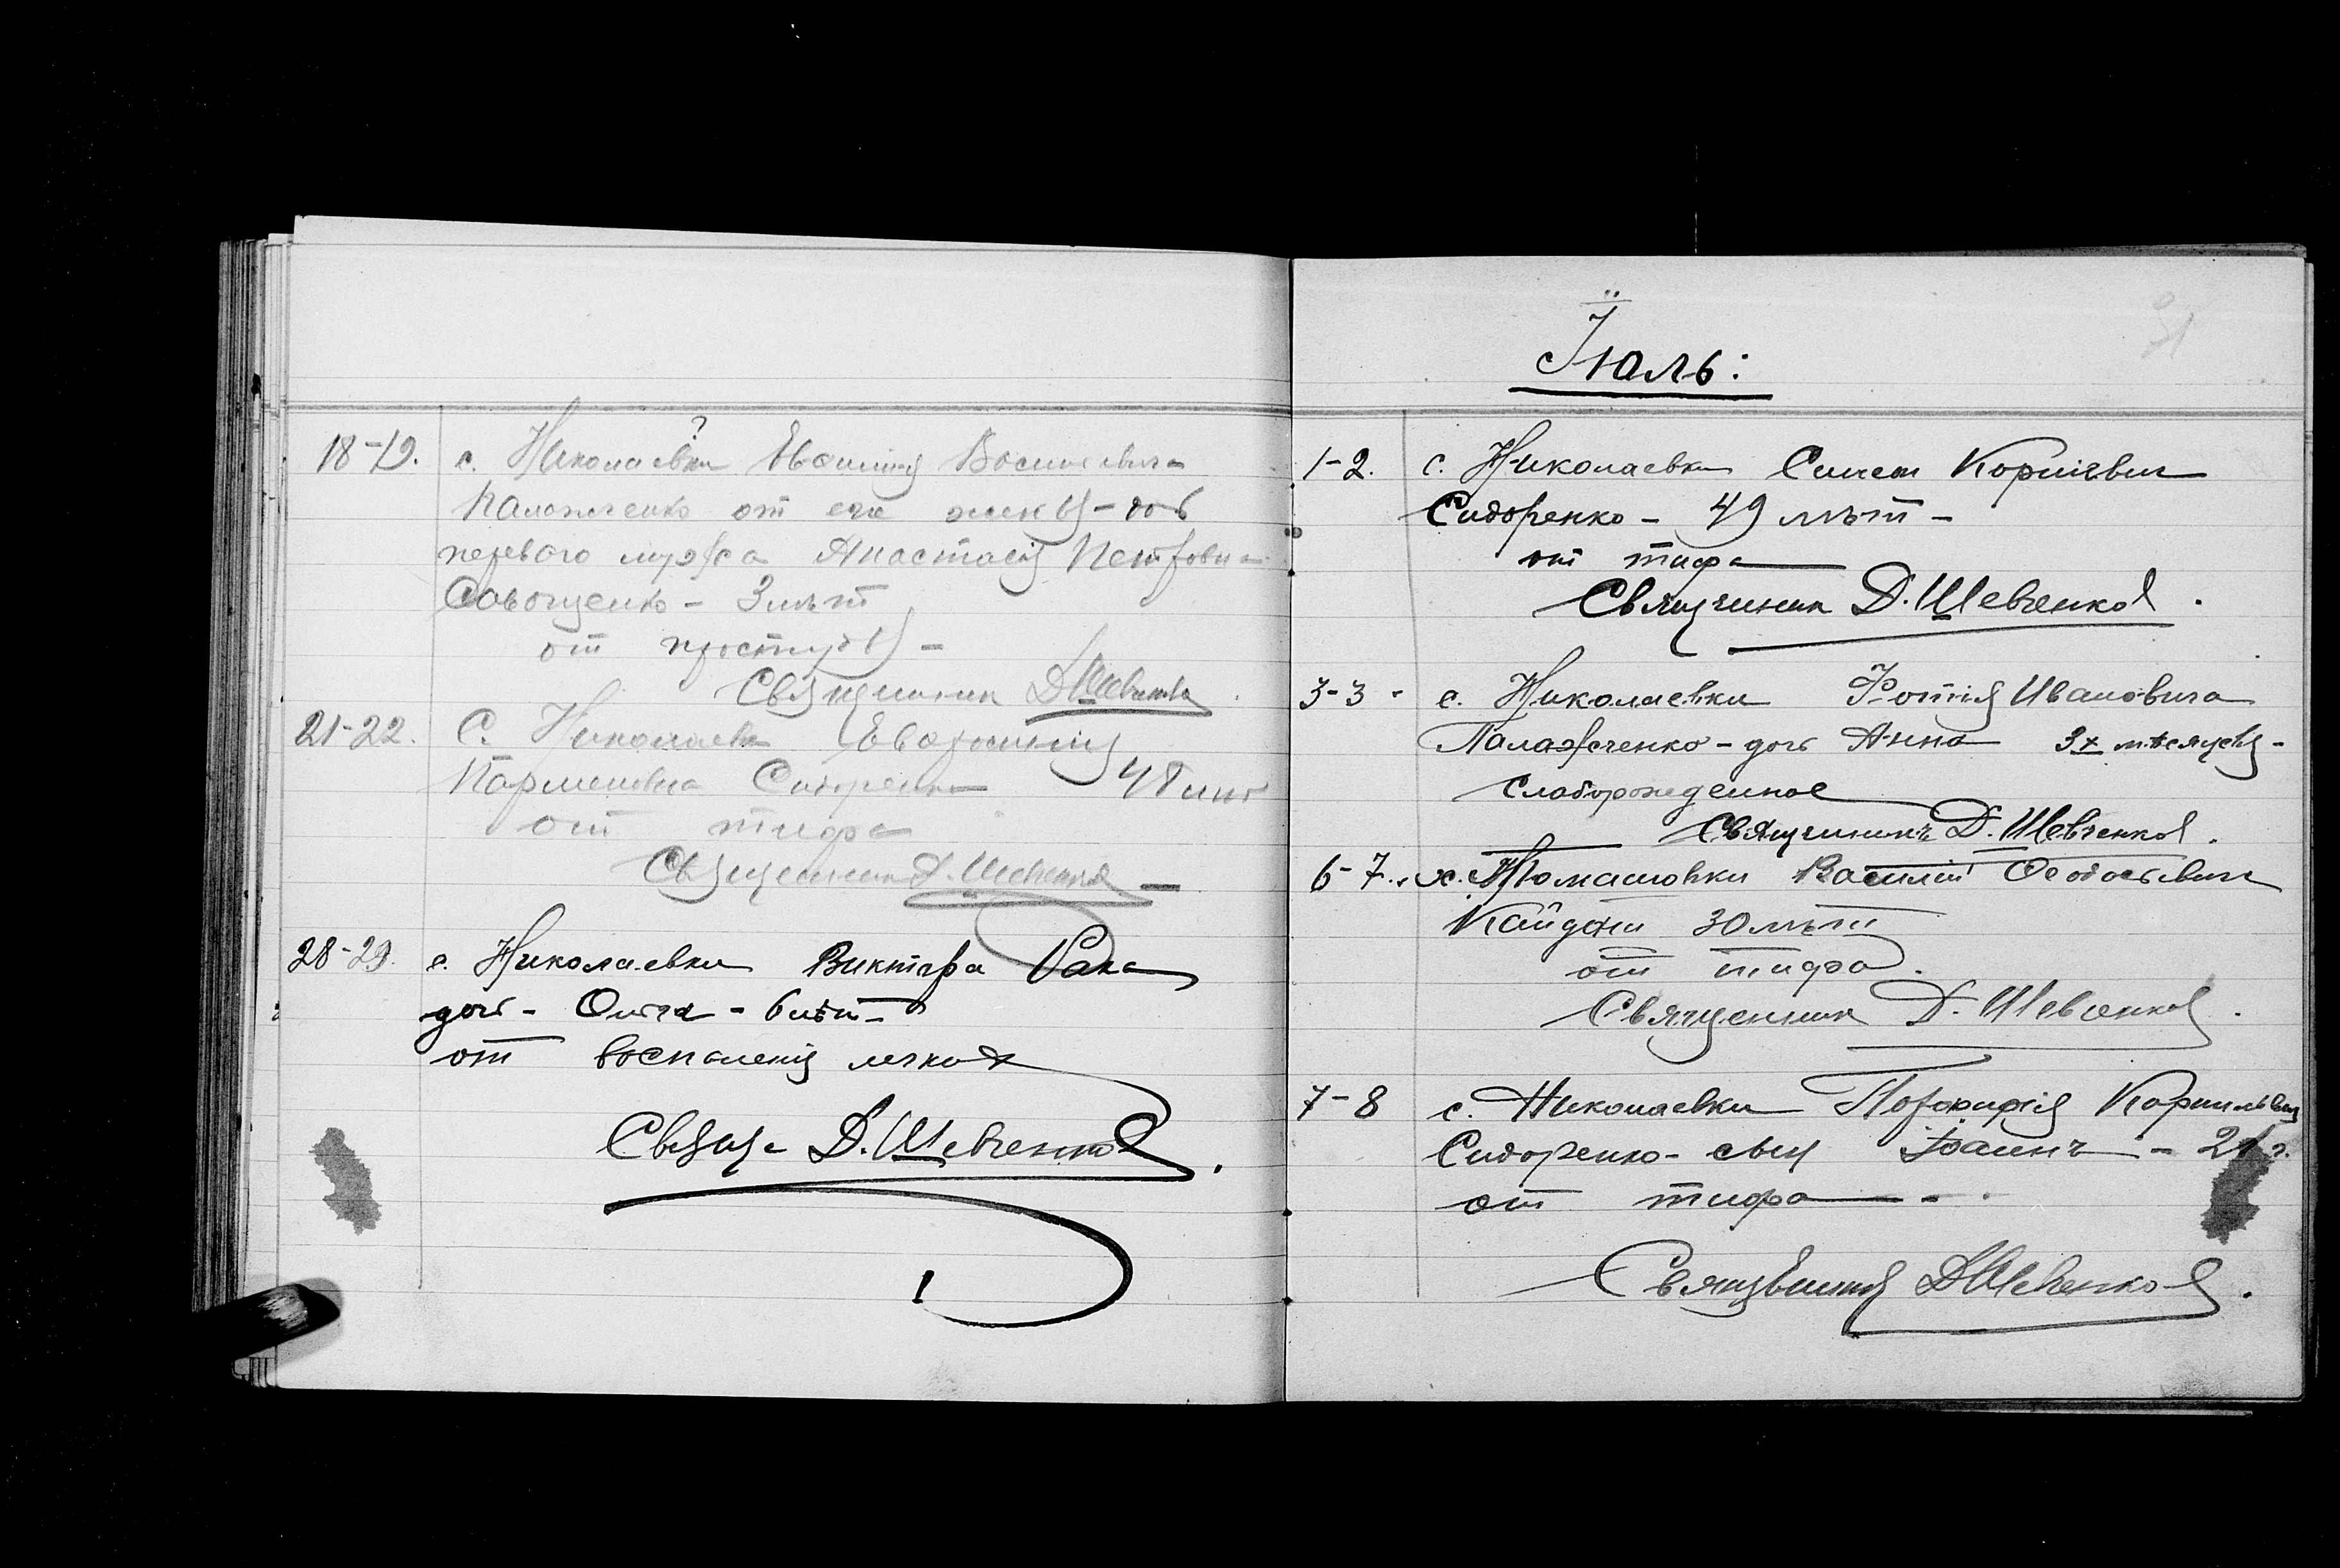 18-19. с. Николаевки ? Евфимія Васильевича
Палажченко от его жены - доч
первого мужа Анастасія Петровна
Савощенко - 3 лѣт
от простуды -
Священник Д Шевченко
21-22. С. Николаевки Евфросинія
Парменовна Сидоренко 48 лит
от тифа
Священник Д. Шевченко
28-29. с. Николаевки Виктора Рака
доч - Олга - 6 лѣт -
от воспаленія легких
Свящ. Д. Шевченко
Іюль:
1-2. с. Николаевки Симеон Корніевич
Сидоренко - 49 лѣт -
от тифа
Священник Д. Шевченко.
3-3. с. Николаевки Фотія Ивановича
Палажченко - доч Анна 3х мѣсяцев -
слаборожденное
Священникъ Д. Шевченко.
6-7. х. Томашовки Василій Феодосевич
Кайдаш 30 лѣт
от тифа.
Священник Д. Шевченко.
7-8 с. Николаевки Порфирія
Сидоренко - сын Іоаннъ - г.
от тифа - -
Священник Д Шевченко.